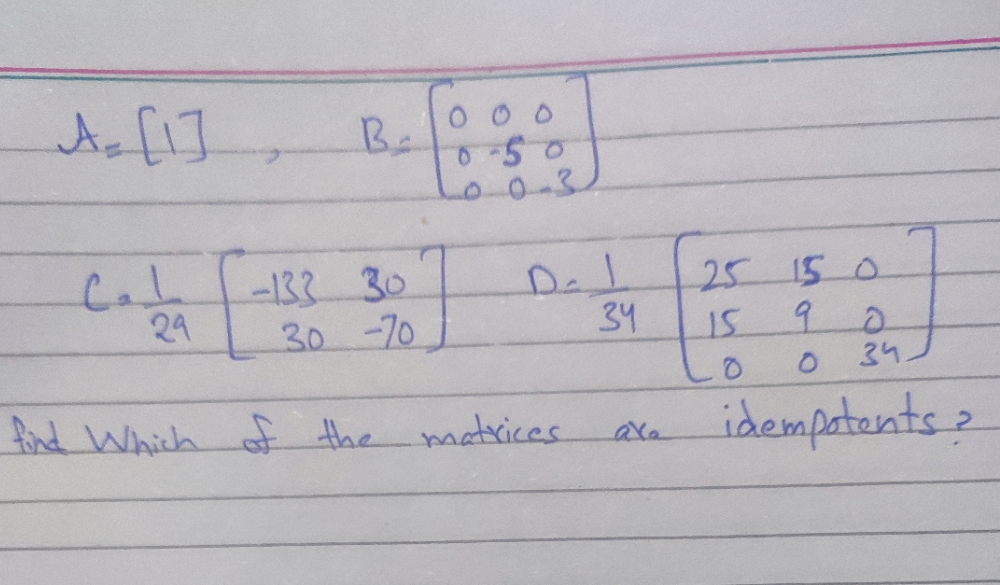 A = [1] , B = [0 0 0
0 -5 0
0 0 -3]
C = 1/29 [-133 30
30 -70] D = 1/34 [25 15 0
15 9 0
0 0 34]
find Which of the matrices are idempotents?